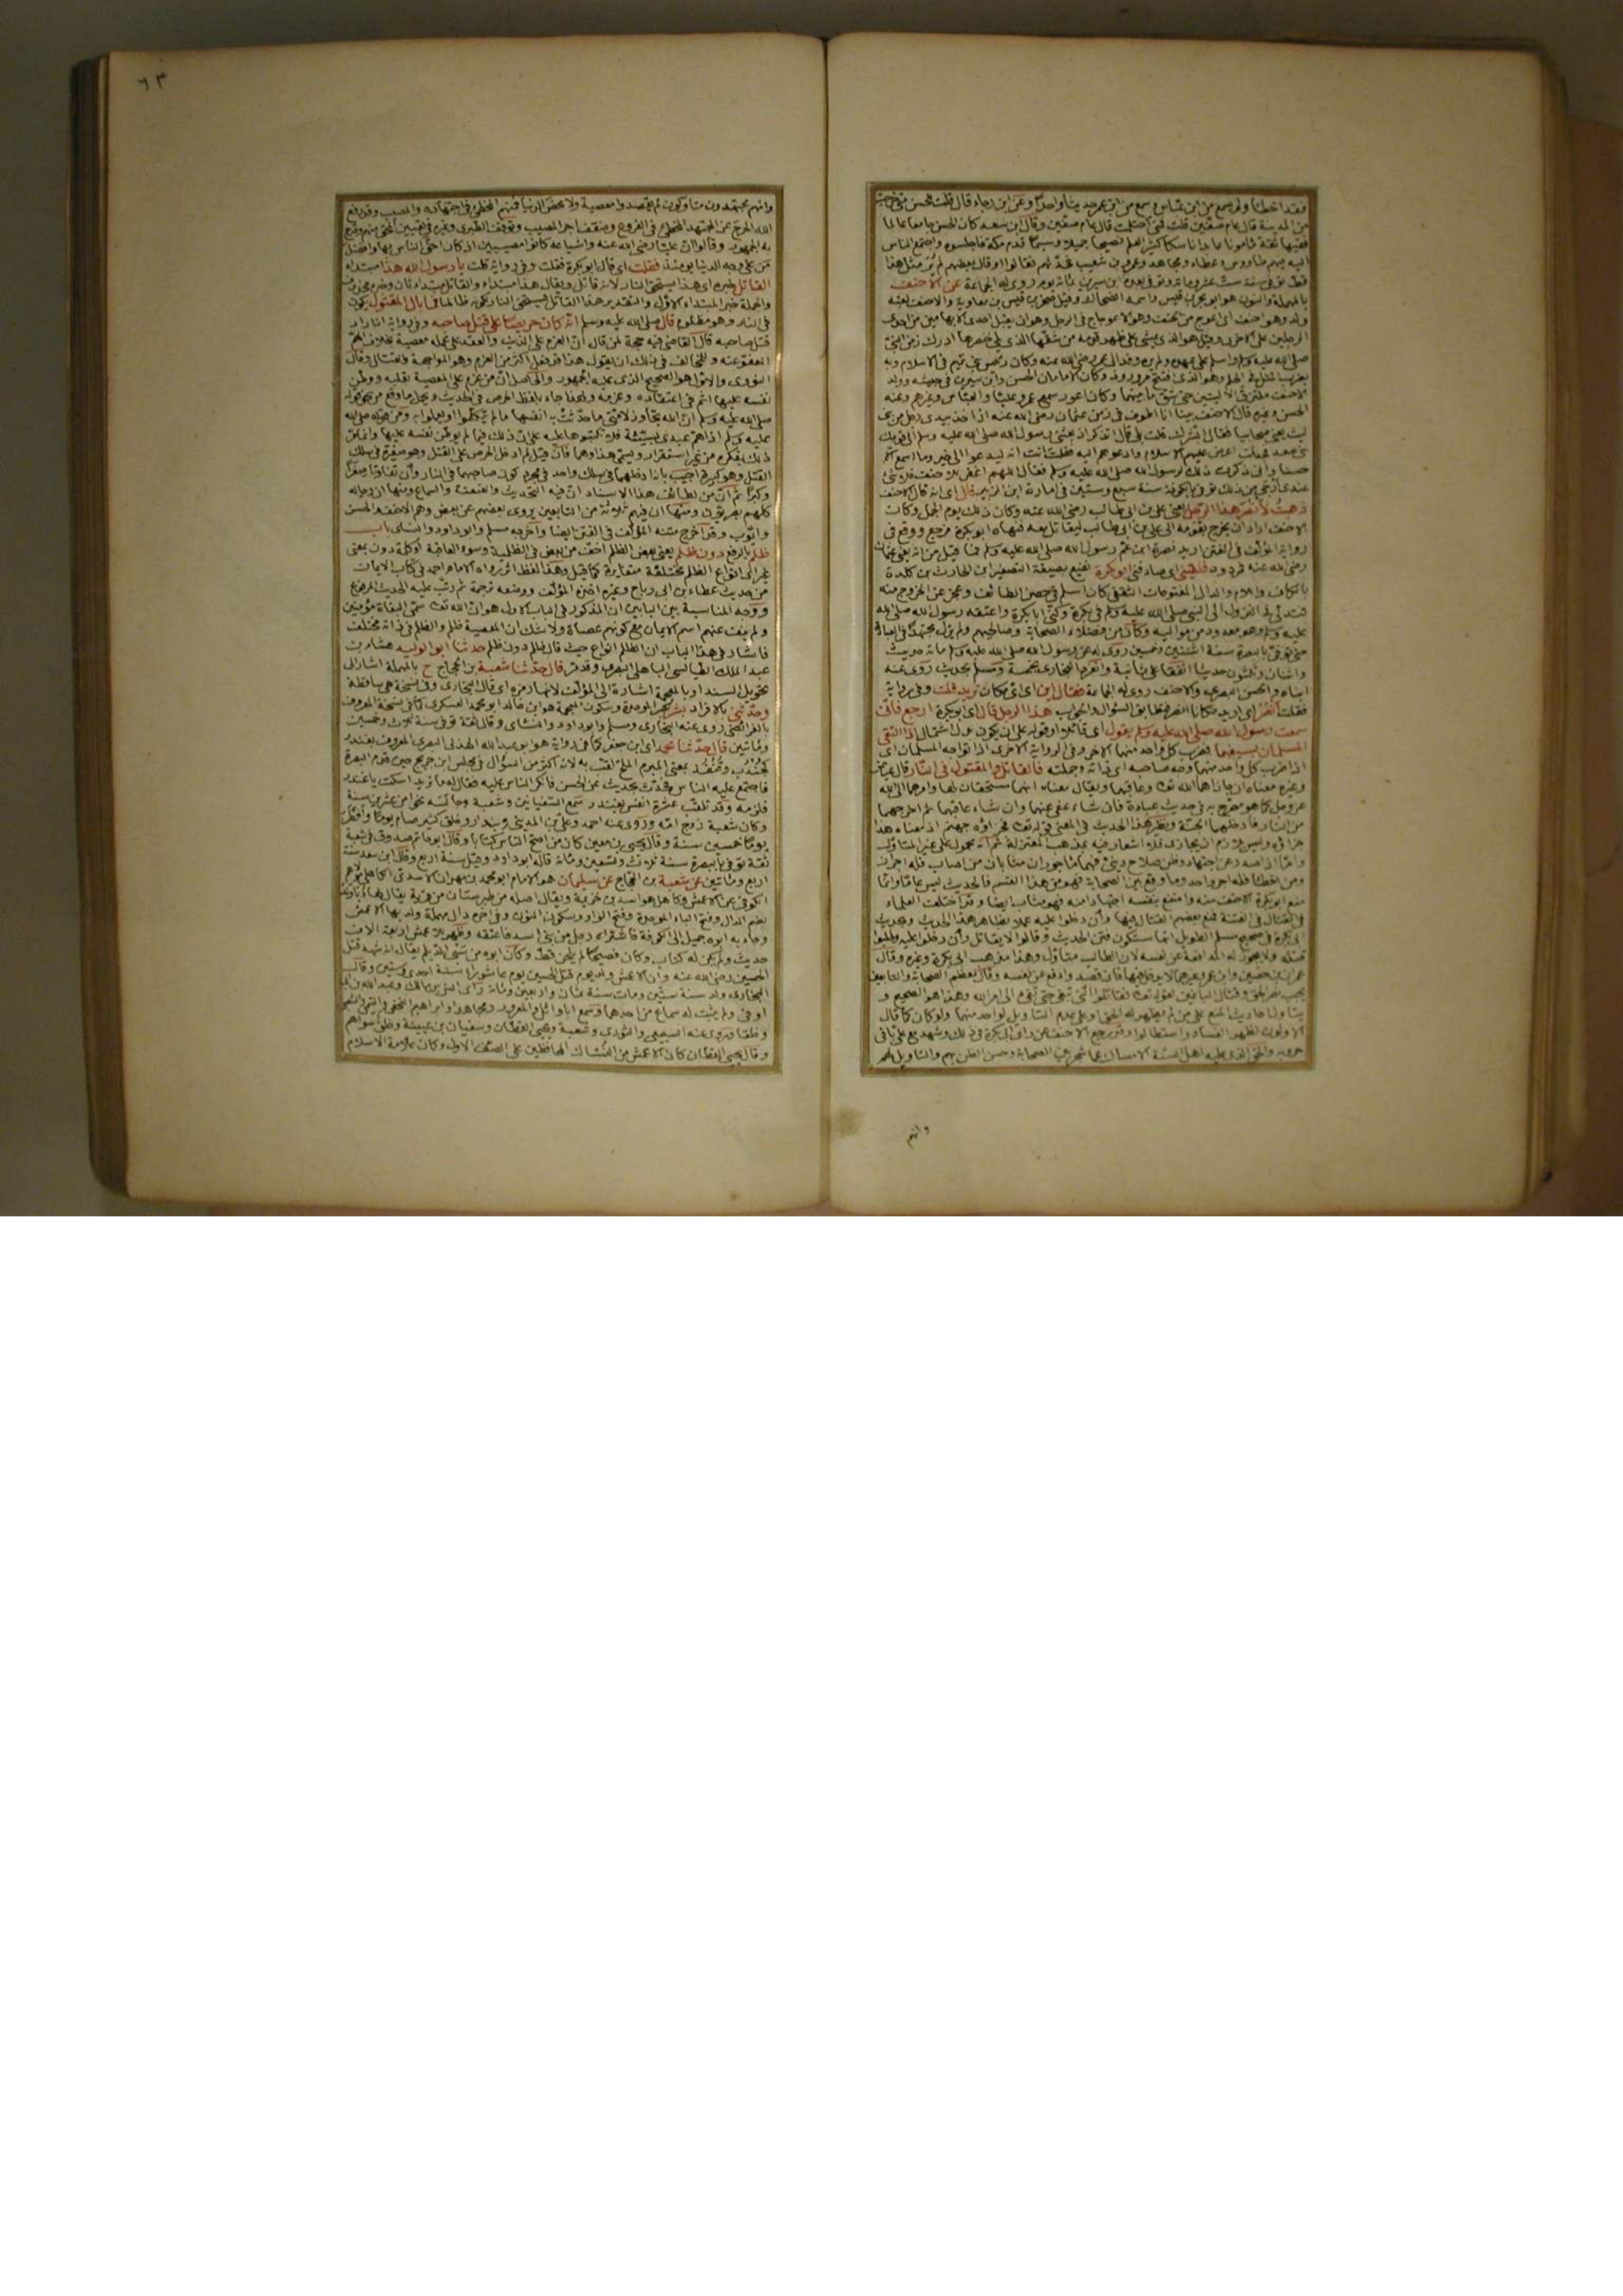 فقد اخطأ ولم يسمع من ابن عباس وسمع من ابن عمر حديثا واحدا وعن ابن رجاء قال قلت للحسن متى خرجت
من المدينة قال عام صفين قلت فمتى احتلمت قال عام صفين وقال ابن سعد كان الحسن جامعا عالما
فقيها ثقة مأمونا عابدا ناسكا كثير العلم فصيحا جميلا وسيما قدم مكة فاجلسوه واجتمع الناس
اليه فيهم طاووس وعطاء ومجاهد وعمرو بن شعيب فحدثهم فقالوا او قال بعضهم لم نر مثل هذا
قط توفى سنة ست عشر ومائة وتوفى بعده ابن سيرين بمائة يوم روى له الجماعة عن الاحنف
بالمهملة والنون هو ابو بحر بن قيس واسمه الضحاك وقيل صخر بن قيس بن معاوية والاحنف لقبه
ولد وهو احنف اى اعوج من الحنف وهو الاعوجاج فى الرجل وهو ان يقبل احدى الابهامين من احدى
الرجلين على الاخرى وقيل هو الذى يمشى على ظهر قدمه من شقها الذى يلى خنصرها ادرك زمن النبى
صلى الله عليه وسلم واسلم على عهده ولم يره وفد الى عمر رضى الله عنه وكان رئيس بنى تميم فى الاسلام وبه
يضرب المثل فى الحلم وهو الذى افتتح مرو روذ وكان الامامان الحسن وابن سيرين فى جيشه وولد
الاحنف ملتزق الاليتين حتى شق ما بينهما وكان اعور سمع عمر وعليا والعباس وغيرهم وعنه
الحسن وغيره قال الاحنف بينا انا اطوف فى زمن عثمان رضى الله عنه اذ اخذ بيدى رجل من بنى
ليث يعنى صحابيا فقال الا ابشرك قلت بلى قال اتذكر اذ بعثنى رسول الله صلى الله عليه وسلم الى قومك
بنى سعد فجعلت اعرض عليهم الاسلام وادعوهم اليه فقلت انت انه ليدعو الى خير وما اسمع الا
حسنا وانى ذكرت ذلك لرسول الله صلى الله عليه وسلم فقال اللهم اغفر للاحنف فلا شئ
عندى ارجى من ذلك توفى بالكوفة سنة سبع وستين فى امارة ابن الزبير قال اى انه قال الاحنف
ذهبت لأنصر هذا الرجل يعنى على بن ابى طالب رضى الله عنه وكان ذلك يوم الجمل وكانت
الاحنف اراد ان يخرج بقومه الى على بن ابى طالب ليقاتل معه فنهاه ابو بكرة فرجع ووقع فى
رواية المؤلف فى الفتن اريد نصرة ابن عم رسول الله صلى الله عليه وسلم فما قيل من انه يعنى عثمان
رضى الله عنه مردود فلقينى اى صادفنى ابو بكرة نفيع بصيغة التصغير ابن الحارث بن كلدة
بالكاف واللام والدال المفتوحات الثقفى كان اسلم فى حصن الطائف وعجز عن الخروج منه
فتدلى الى النبى صلى الله عليه وسلم فى بكرة وكنى ابا بكرة واعتقه رسول الله صلى الله
عليه وسلم وهو معدود من مواليه وكان من فضلاء الصحابة وصالحيهم ولم يزل مجتهدا فى العبادة
حتى توفى بالبصرة سنة اثنتين وخمسين روى له عن رسول الله صلى الله عليه وسلم مائة حديث
واثنان وثلثون حديثا اتفقا على ثمانية وانفرد البخارى بخمسة ومسلم بحديث روى عنه
ابناه والحسن البصرى والاحنف روى له الجماعة فقال اين اى اى مكان تريد قلت وفى رواية
فقلت انصر اى اريد مكانا انصر فطابق السؤال والجواب هذا الرجل قال اى ابو بكرة ارجع فانى
سمعت رسول الله صلى الله عليه وسلم يقول اى قائلا او قوله على ان يكون بدل اشتمال اذا التقى
المسلمان بسيفيهما فضرب كل واحد منهما الاخر وفى الرواية الاخرى اذا تواجه المسلمان اى
اذا ضرب كل واحد منهما وجه صاحبه اى ذاته وجملته فالقاتل والمقتول فى النار قال عياض
وغيره معناه ان جازاهما الله تعالى وعاقبهما ويقال معناه انهما مستحقان لها وامرهما الى الله
عز وجل كما هو مصرح به فى حديث عبادة فان شاء عفى عنهما وان شاء عاقبهما ثم اخرجهما
من النار فادخلهما الجنة ونظير هذا الحديث فى المعنى قوله تعالى فجزاؤه جهنم اذ معناه هذا
جزاؤه وليس بلازم ان يجازى فلا اشعار فيه بمذهب المعتزلة ثم انه محمول على غير المتأول
واما اذا صدر عن اجتهاد وظن صلاح دينى فهما مأجوران مثابان من اصاب فله اجران
ومن اخطأ فله اجر واحد وما وقع بين الصحابة فهو من هذا القسم فالحديث ليس عاما وانما
منع ابو بكرة الاحنف منه وامتنع بنفسه اجتهادا منه فهو مثاب ايضا وقد اختلف العلماء
فى القتال فى الفتنة فمنع بعضهم القتال فيها وان دخلوا عليه عملا بظاهر هذا الحديث وبحديث
ابى بكرة فى صحيح مسلم الطويل انها ستكون فتن الحديث وقالوا لا يقاتل وان دخلوا عليه وطلبوا
قتله ولا يجوز له المدافعة عن نفسه لان الطالب متأول وهذا مذهب ابى بكرة وغيره وقال
عمران بن حصين وابن عمر وغيرهما لا يدخل فيها فان قصد دافع عن نفسه وقال معظم الصحابة والتابعين
يجب نصر الحق وقتال الباغين لقوله تعالى فقاتلوا التى تبغى حتى تفئ الى امر الله وهذا هو الصحيح و
يتأول احاديث المنع على من لم يظهر له الحق او على عدم التأويل لواحد منهما ولو كان كما قال
الاولون لظهر الفساد واستطالوا وقد رجع الاحنف عن رأى ابى بكرة فى ذلك وشهد مع على باقى
حروبه والحق الذى عليه اهل السنة الامساك عما شجر بين الصحابة وحسن الظن بهم والتأويل لهم
وانهم
٦٣
وانهم مجتهدون متأولون لم يقصدوا معصية ولا محض الدنيا فمنهم المخطئ فى اجتهاده والمصيب وقد رفع
الله الحرج عن المجتهد المخطئ فى الفروع وضعف اجر المصيب وتوقف الطبرى وغيره فى تعيين المحق منهم وصرح
به الجمهور وقالوا ان عليا رضى الله عنه واشياعه كانوا مصيبين اذ كان احق الناس بها وافضل
من على وجه الدنيا يومئذ فقلت اى قال ابو بكرة فقلت وفى رواية قلت يا رسول الله هذا مبتداء
القاتل خبره اى هذا يستحق النار لانه قاتل ويقال هذا مبتداء والقاتل مبتداء ثان وخبره محذوف
والجملة خبر المبتداء الاول والتقدير هذا القاتل يستحق النار لكونه ظالما فما بال المقتول يكون
فى النار وهو مظلوم قال صلى الله عليه وسلم انه كان حريصا على قتل صاحبه وفى رواية انه اراد
قتل صاحبه قال القاضى فيه حجة لمن قال ان العزم على الذنب والعقد على عمله معصية بخلاف الهم
المعفو عنه وللمخالف فى ذلك ان يقول هذا قد فعل اكثر من العزم وهو المواجهة والقتال وقال
النووى والاول هو الصحيح الذى عليه الجمهور والحاصل ان من عزم على المعصية بقلبه ووطن
نفسه عليها اثم فى اعتقاده وعزمه ولهذا جاء بلفظ الحرص فى الحديث ويحمل ما وقع من نحو قوله
صلى الله عليه وسلم ان الله تجاوز لامتى ما حدثت به انفسها ما لم يتكلموا او يعملوا به ومن قوله صلى الله
عليه وسلم اذا هم عبدى بسيئة فلا تكتبوها عليه على ان ذلك فيما لم يوطن نفسه عليها وانما مر
ذلك بفكره من غير استقرار ويسمى هذا وهما فان قيل لم ادخل الحرص على القتل وهو صغيرة فى سلك
القتل وهو كبيرة اجيب بانه ادخلهما فى سلك واحد فى مجرد كون صاحبهما فى النار وان تفاوتا صغرا
وكبرا ثم ان من لطائف هذا الاسناد ان فيه التحديث والعنعنة والسماع ومنها ان رجاله
كلهم بصريون ومنها ان فيهم ثلاثة من التابعين يروى بعضهم عن بعض وهم الاحنف والحسن
وايوب وقد اخرج متنه المؤلف فى الفتن ايضا واخرجه مسلم وابو داود والنسائى باب
ظلم بالرفع دون ظلم يعنى بعض الظلم اخف من بعض فى الظلمية وسوء العاقبة او كلمة دون بمعنى
غير اى انواع الظلم مختلفة متغايرة كما قيل وهذا لفظ اثر رواه الامام احمد فى كتاب الايمان
من حديث عطاء بن ابى رباح وغيره اخذه المؤلف ووضعه ترجمة ثم رتب عليه الحديث المرفوع
ووجه المناسبة بين البابين ان المذكور فى الباب الاول هو ان الله تعالى سمى البغاة مؤمنين
ولم ينف عنهم اسم الايمان مع كونهم عصاة ولا شك ان المعصية ظلم والظلم فى ذاته مختلف
فاشار فى هذا الباب ان الظلم انواع حيث قال ظلم دون ظلم حدثنا ابو الوليد هشام بن
عبد الملك الطيالسى الباهلى البصرى وقد مر قال حدثنا شعبة بن الحجاج ح بالمهملة اشار الى
تحويل السند او بالمعجمة اشارة الى المؤلف لانها رمزه اى قال البخارى وفى نسخة هى ساقطة
وحدثنى بالافراد بشر بكسر الموحدة وسكون المعجمة هو ابن خالد ابو محمد العسكرى كما فى نسخة المعروف
بالفرائضى روى عنه البخارى ومسلم وابو داود والنسائى وقال ثقة توفى سنة ثلاث وخمسين
ومائتين قال حدثنا محمد اى ابن جعفر كما فى رواية هو ابو عبد الله الهذلى البصرى المعروف بغندر
كجندب وقنفذ بمعنى المبرم الملح لقب به لانه اكثر من السؤال فى مجلس ابن جريج حين قدم البصرة
فاجتمع عليه الناس فحدث بحديث عن الحسن فانكر الناس عليه فقال له ما تريد اسكت يا غندر
فلزمه وقد تلقب عشرة انفس بغندر سمع السفيانين وشعبة وجالسه نحوا من عشرين سنة
وكان شعبة زوج امه وروى عنه احمد وعلى بن المدينى وبندار وخلق كثير صام يوما وافطر
يوما خمسين سنة وقال يحيى بن معين كان من اصح الناس كتابا وقال ابو حاتم صدوق فى شعبة
ثقة توفى بالبصرة سنة ثلاث وتسعين ومائة قاله ابو داود وقيل سنة اربع وقال ابن سعد سنة
اربع ومائتين عن شعبة بن الحجاج عن سليمان هو الامام ابو محمد بن مهران الاسدى الكاهلى مولاهم
الكوفى الاعمش وكاهل هو اسد بن خزيمة ويقال اصله من طبرستان من قرية يقال لها دنباوند
بضم الدال وفتح الباء الموحدة وفتح الواو وسكون النون وفى اخره دال مهملة ولد بها الاعمش
وجاء به ابوه جميل الى الكوفة فاشتراه رجل من بنى اسد فاعتقه وظهر للاعمش اربعة الاف
حديث ولم يكن له كتاب وكان فصيحا لم يلحن قط وكان ابوه من سبى الديلم يقال انه شهد قتل
الحسين رضى الله عنه وان الاعمش ولد يوم قتل الحسين يوم عاشوراء سنة احدى وستين وقال
البخارى ولد سنة ستين ومات سنة ثمان واربعين ومائة رأى انس بن مالك وعبد الله بن ابى
اوفى ولم يثبت له سماع من احدهما وسمع ابا وائل والمعرور ومجاهدا وابراهيم النخعى والتيمى والشعبى
وخلقا وروى عنه السبيعى والثورى وشعبة ويحيى القطان وسفيان بن عيينة وخلق سواهم
وقال يحيى القطان كان الاعمش من النساك المحافظين على الصف الاول وكان علامة الاسلام